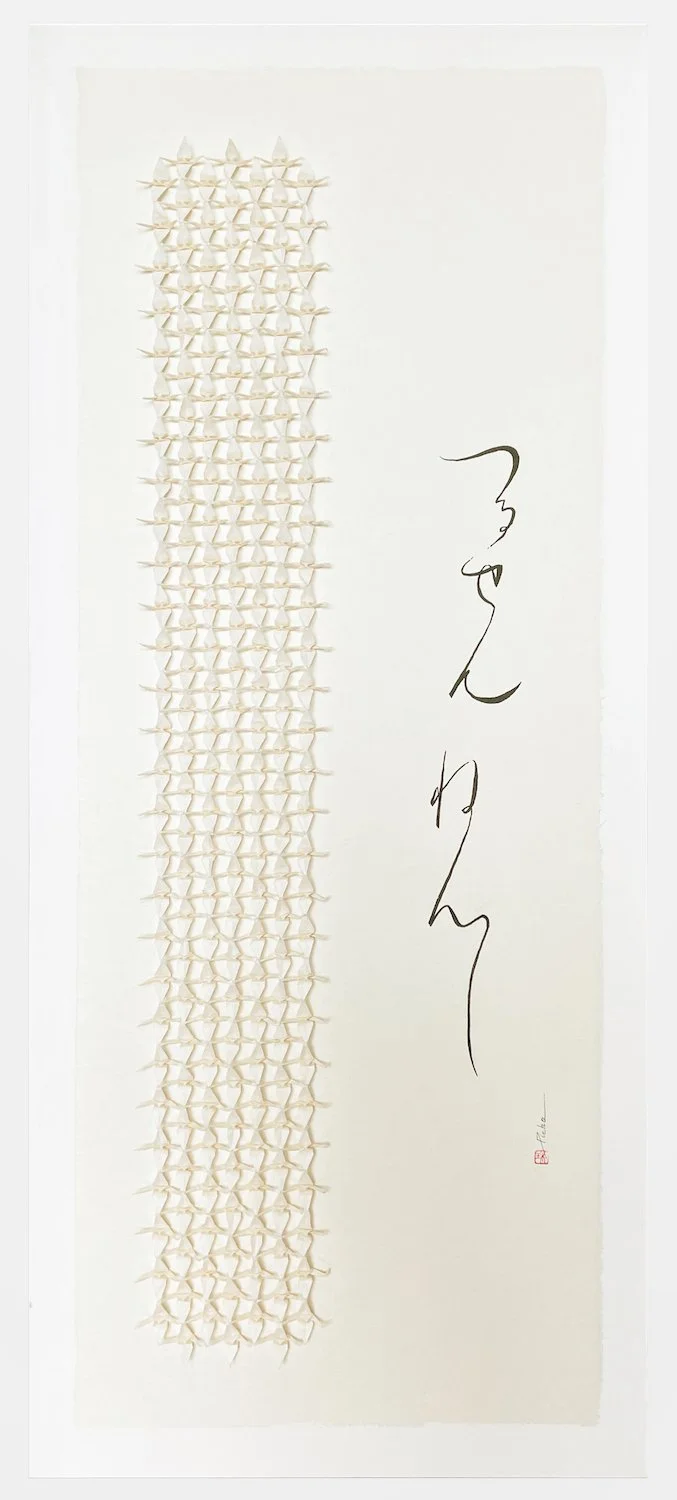 つるせんねん